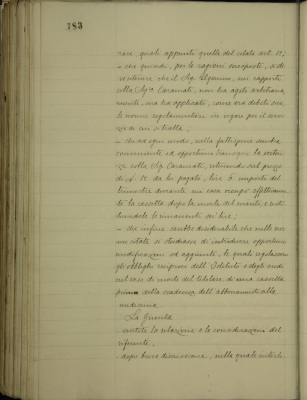 783
rare, quali appunto quelle del citato art. 12;
- che quindi, per le ragioni esposte, è da
ritenere che il Sig. nei rapporti
colla Sig.ra Caramati, non ha agito arbitraria
mente, ma ha applicato, come era debito suo,
le norme regolamentari in vigore per il servi
zio di cui si tratta;
- che ad ogni modo, nella fattispecie sembra
conveniente ed opportuno la verten
za colla Sig. Caramati, ritenendo sul prezzo
di £ 12 da lei pagato, lire 6 importo del
trimestre durante cui essa occupò effettivamen
te la cassetta dopo la morte del marito, e resti
tuendole le rimanenti sei lire;
- che infine sarebbe desiderabile che nelle nor
me citate si studiasse di introdurre opportune
modificazioni od aggiunte, le quali regolassero
gli obblighi reciproci dell'Istituto e degli eredi
nel caso di morte del titolare di una cassetta
prima della scadenza dell'abbonamento alla
medesima.
La Giunta
- sentite la relazione e le considerazioni del
riferente;
- dopo breve discussione, nella quale